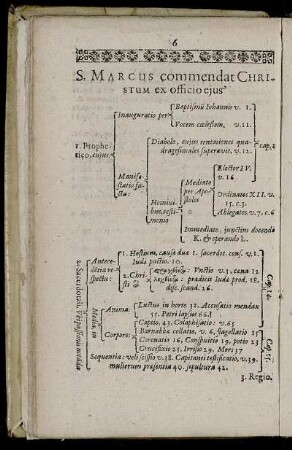 6
S. MARCUS commendat CHRI-
STUM ex officio ejus
1. Prophe-
tico, cujus
Inauguratio per
Baptismū Iohannis v. 1.
Vocem cœlestem, v. 11.
Manife-
statio fa-
cta:
Diabolo, cujus tentationes qua-
dragesimales superavit. v. 12.
cap. 1
Homini-
bus, testi-
monio
Mediate
per Apo-
stolos
Electos IV.
v. 16
Ordinatos XII. v.
15. c. 3.
Ablegatos v. 7. c. 6
Immediate, junctim docendo
& operando
2. Sacerdotali,
Antece-
dētia re-
spectu:
1. Hostium, causæ duæ 1. sacerdot. cons. v. 1
Iudæ
2. Chri-
sti
Unctio v. 3. cœna 12
prædicit Iudæ prod. 18.
disc. scand. 26.
Cap. 14.
Media, in
Anima:
Luctus in horto 32. Accusatio mendax
55. Petri lapsus 66.
Corpore:
Captio. 43. Colaphisatio: v. 65
Barrabæ collatio, v. 6. flagellatio 15
Coronatio 16. Conspuitio 19. potio 23
Crucifixio 25. Irrisio 29. Mors 37
Cap. 15.
Sequentia: veli scissio v. 38. Capitanei testificatio, v. 39.
mulierum præsentia 40. sepultura 42.
3. Regio,